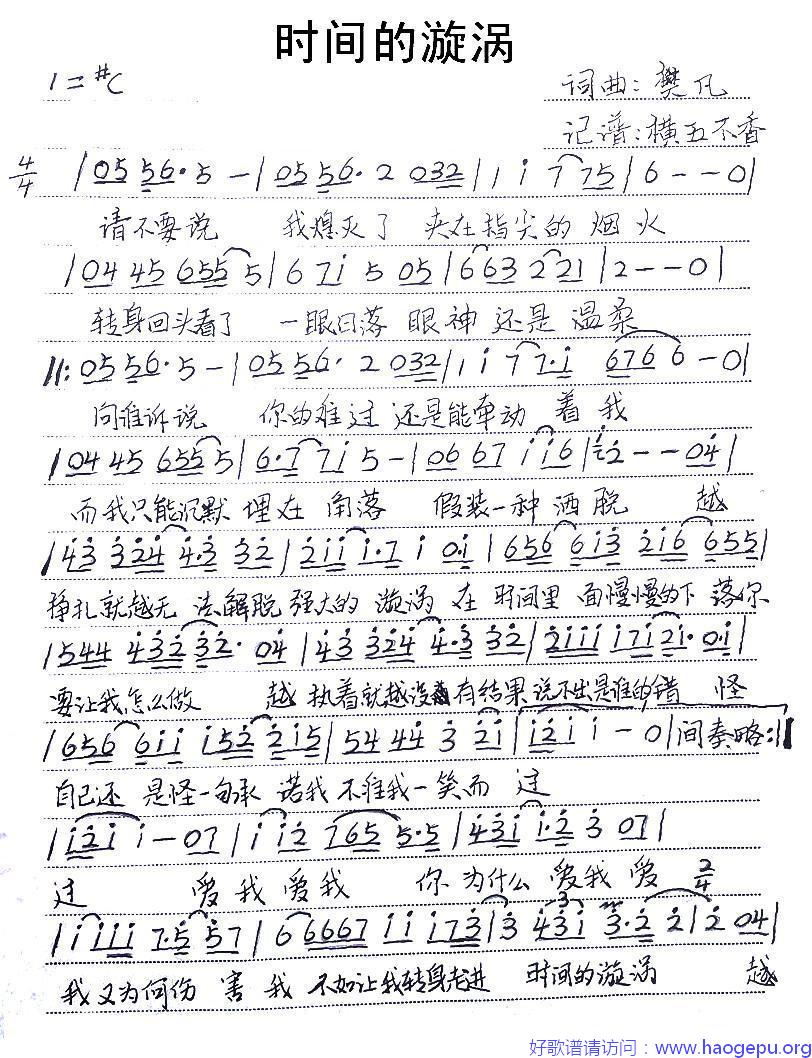 时间的漩涡
1=#C
词曲:樊凡
记谱:横五不香
4/4 |05 56·5 -|05 56· 2 032|1 i 7 775|6 - - 0|
请不要说 我熄灭了 夹在指尖的 烟火
|04 45 655 5|6 7i 5 05|663 221|2 - - 0|
转身回头看了 一眼日落 眼神 还是 温柔
||:05 56·5 -|05 56· 2 032|1 i 7 7·i 6766 - 0|
问谁诉说 你的难过 还是能牵动 着我
|04 45 655 5|6·7 7i 5 -|06 67 i i6|2 - - 04|
而我只能沉默 埋在 角落 假装一种 洒脱 越
|43 324 4·3 32|2ii i·7 i 0·i|656 6i3 2i6 655|
挣扎就越无 法解脱 强大的 漩涡 在 时间里 面慢慢的下 落你
|544 432 32· 04|43 324 4·3 32|2iii i7i2i· 0·i|
要让我怎么做 越 执着就越没有结果 说不出是谁的错 怪
|656 6ii i52 2i5|54 44 3 2i|i2i i - 0|间奏略:||
自己还 是怪一句承 诺我 不难我一笑而 过
|i2i i - 07|i i2 765 5·5|43i i·2 3 07|
过 爱我爱我 你 为什么 爱我 爱 2/4
|i iii 7·5 57|6 6667 i i i73|3 43i 3·2 2|2 04|
我又为何伤 害 我 不如让我转身走进 时间的漩涡 越
好歌谱请访问：www.haogepu.org